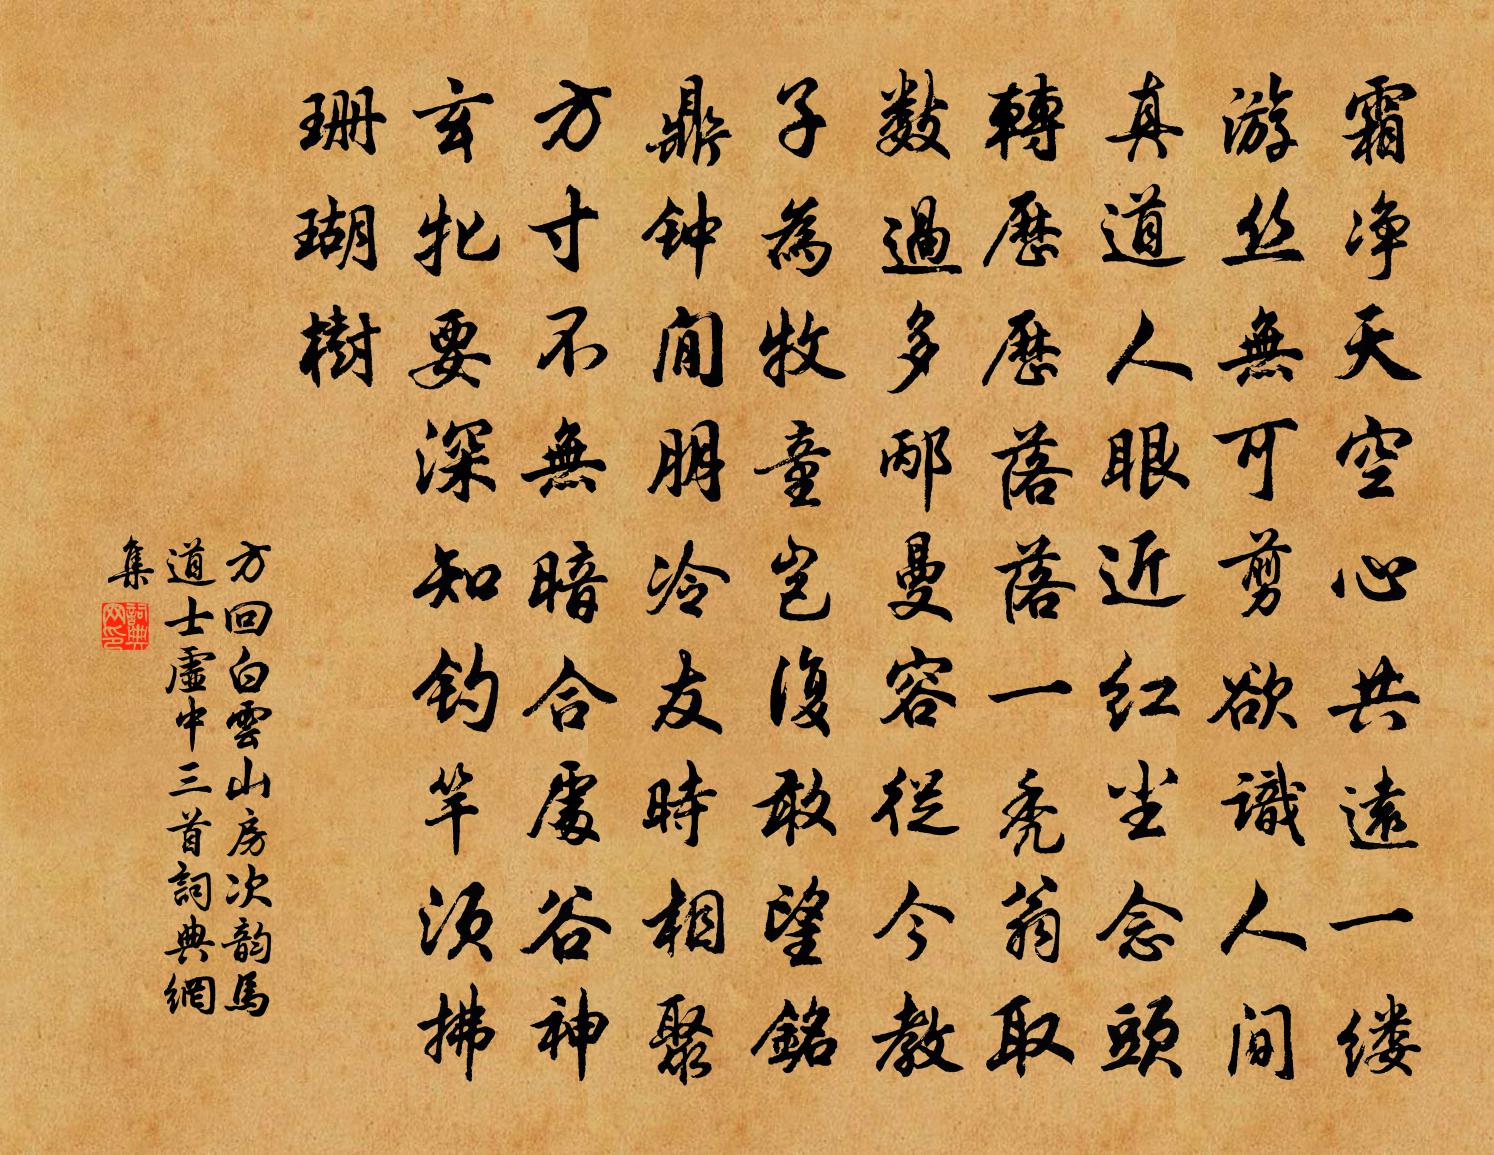 霜净天空心共遠一缕
游丝無可剪欲識人间
真道人眼近红尘念頭
轉歷歷落落一禿翁取
數過多邴曼容從今教
子為牧童岂復敢望銘
鼎钟闲朋冷友時相聚
方寸不無暗合處谷神
玄牝要深知钓竿须拂
珊瑚樹
方回白雲山房次韵馬
道士虛中三首詞典網
集
詞典网印